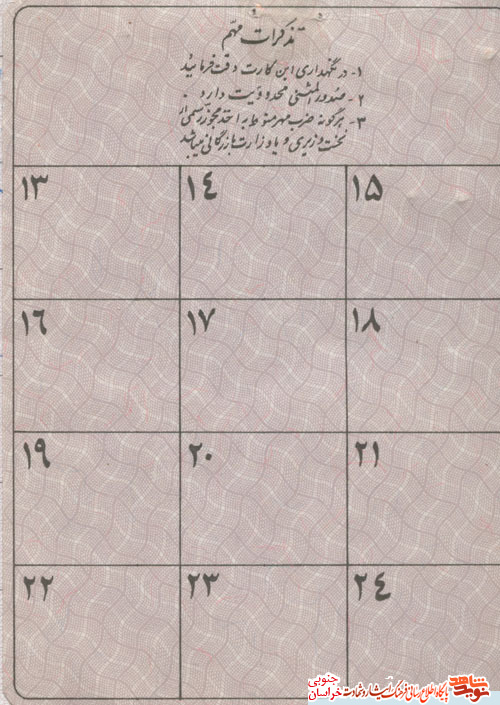 تذکرات مهم
۱- در نگهداری این کارت دقت فرمائید
۲- صدور المثنی محدودیت دارد
۳- هرگونه ضرب مهر منوط به اخذ مجوز رسمی از
نخست وزیری و یا وزارت بازرگانی میباشد
۱۳ ۱۴ ۱۵
۱۶ ۱۷ ۱۸
۱۹ ۲۰ ۲۱
۲۲ ۲۳ ۲۴
نوید شاهد
پایگاه اطلاع رسانی فرهنگ ایثار و شهادت
خراسان جنوبی